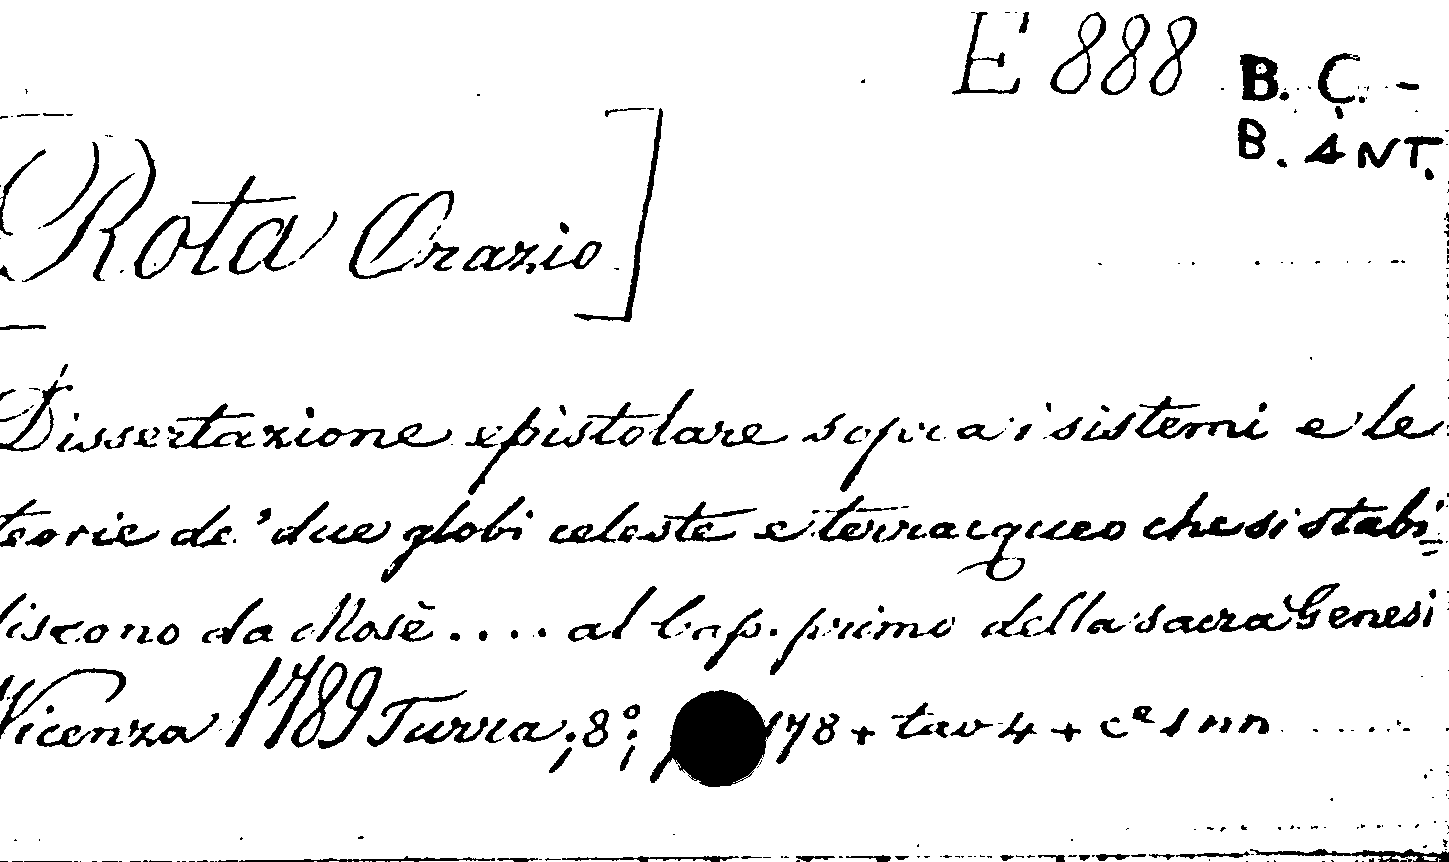 E 888 B. C. -
B. ANT.
[Rota Orazio]
Dissertazione epistolare sopra i sistemi e le
teorie de' due globi celeste e terracqueo che si stabi=
liscono da Mosè .... al Cap. primo della sacra Genesi
Vicenza 1789 Turra; 8°; 178 + tav 4 + cᵃ 1 nn